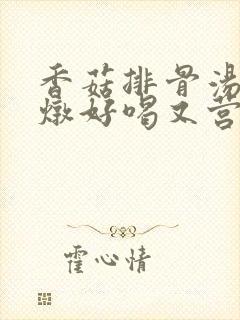 香菇排骨汤
燉好喝又营
霍心情